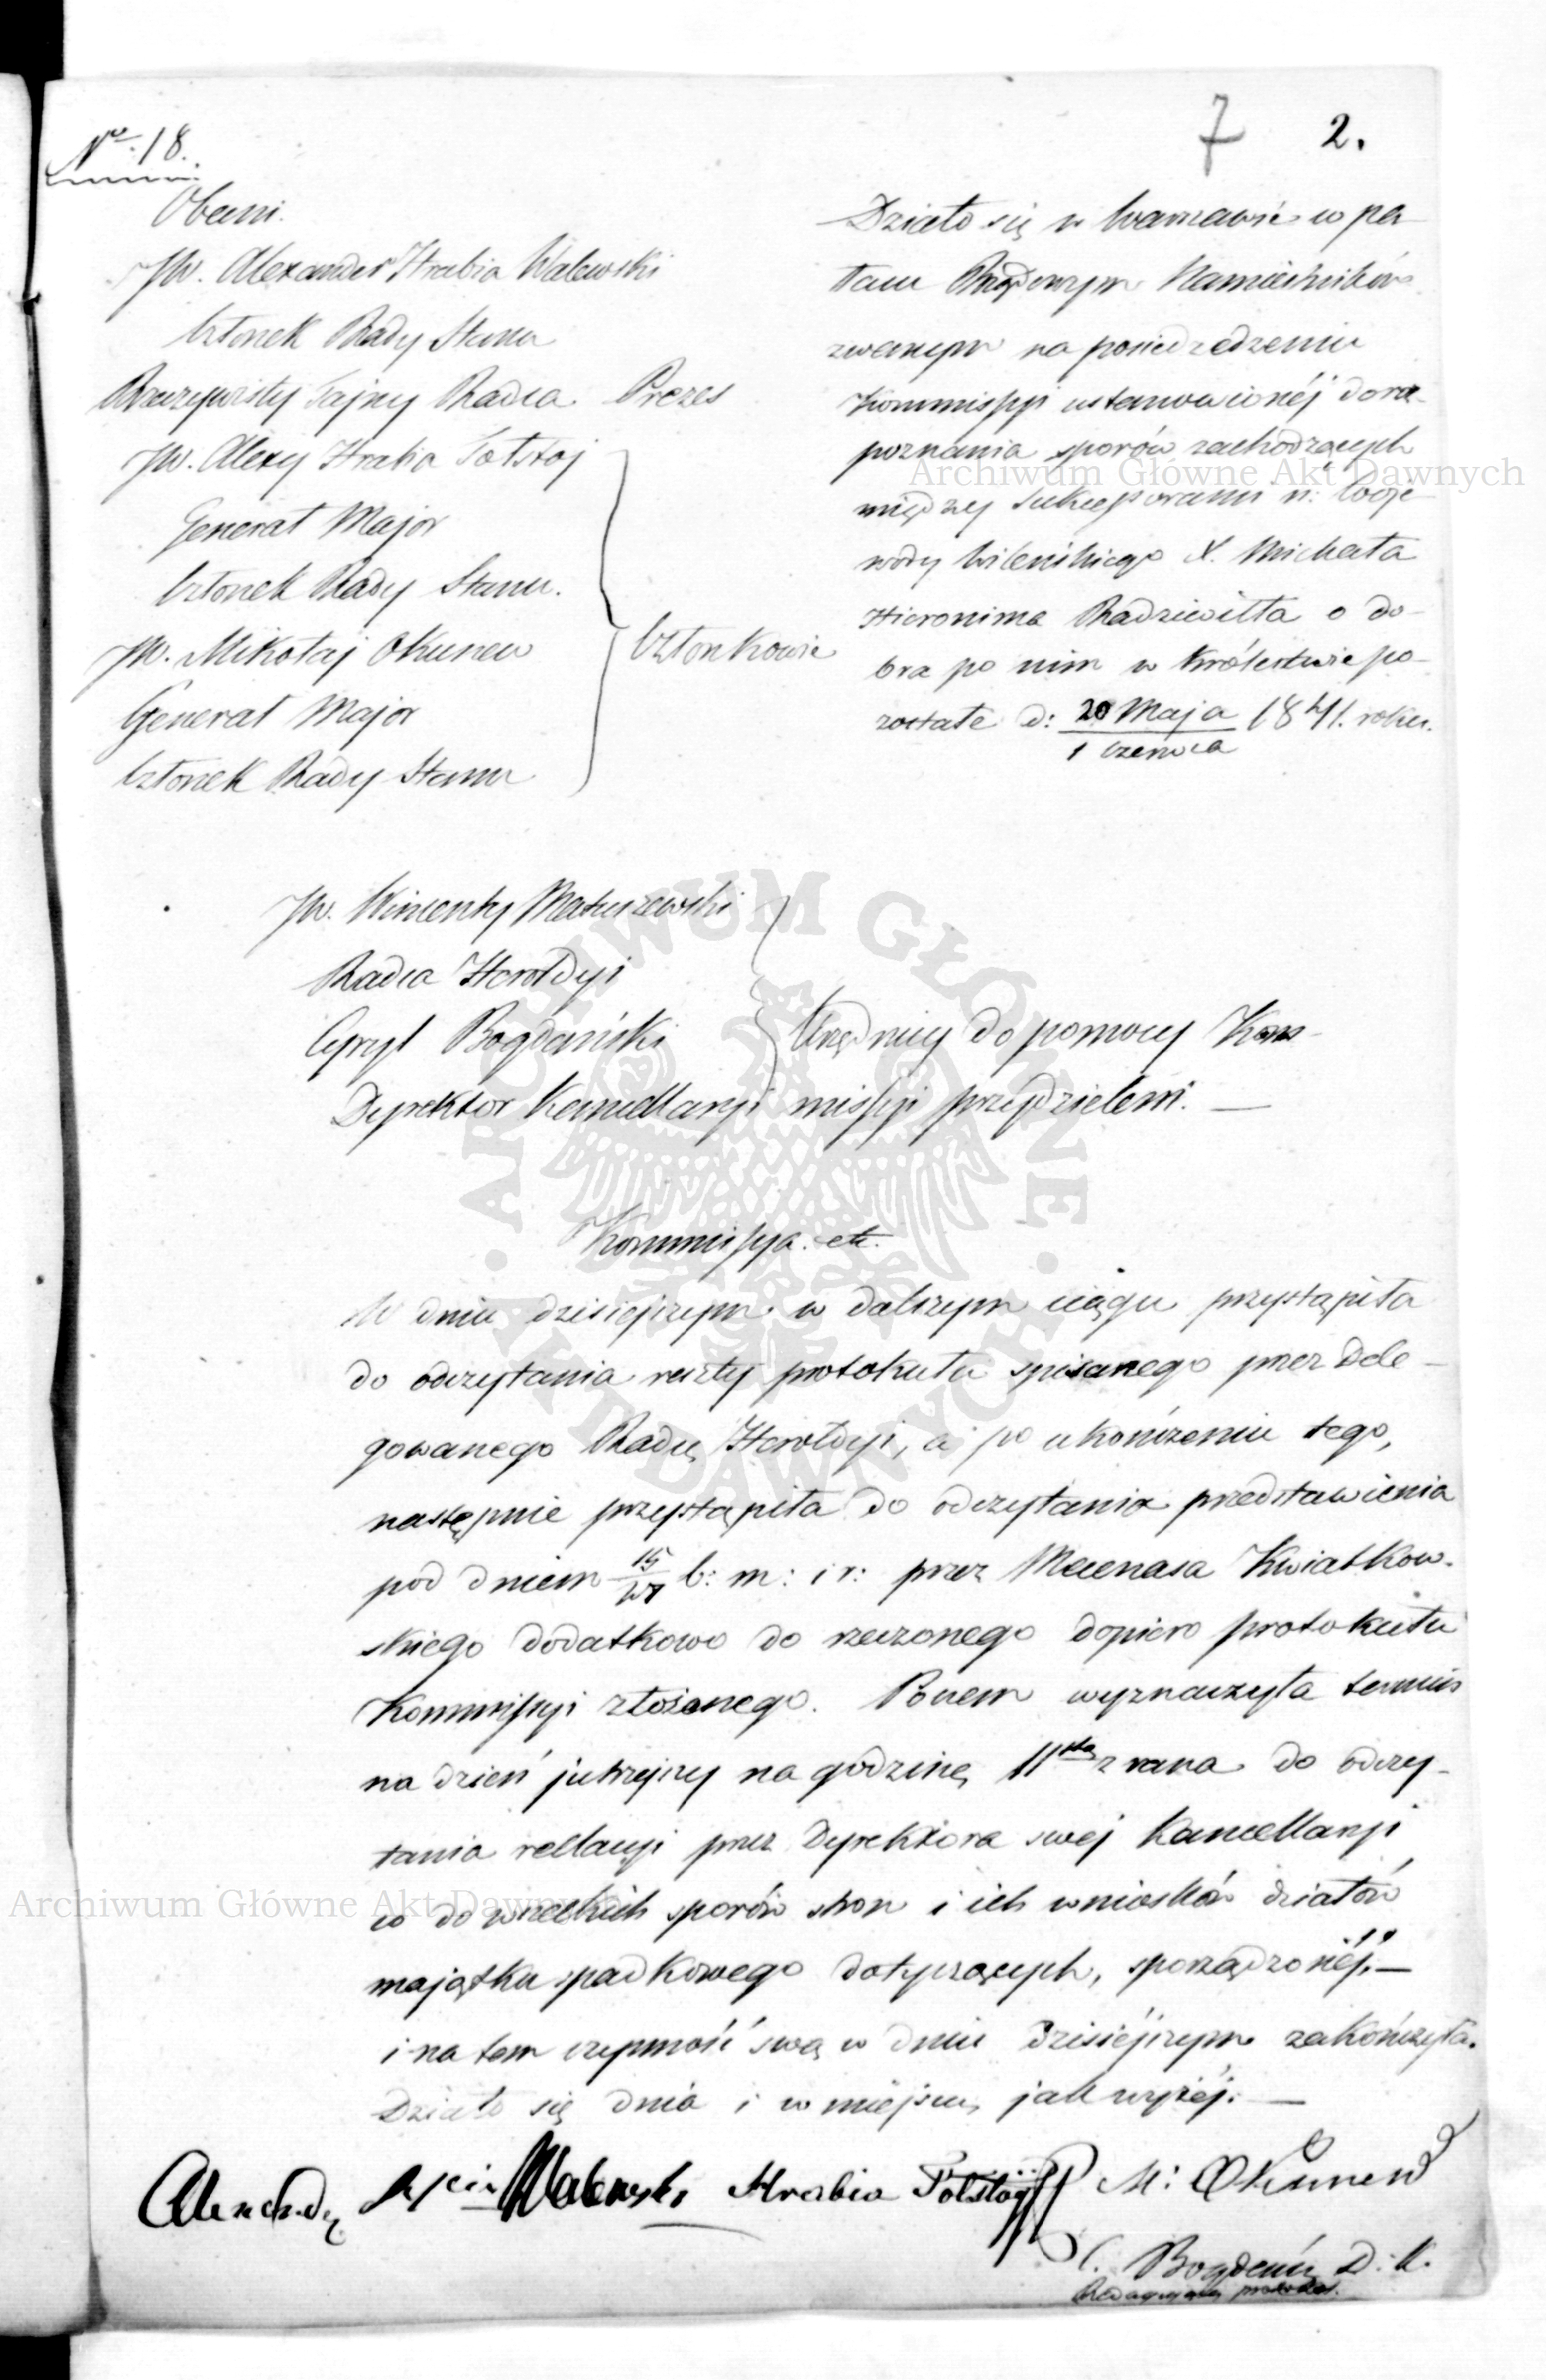 No. 18.
7 2.
Obecni.
JW. Alexander Hrabia Walewski
Członek Rady Stanu
Rzeczywisty Tajny Radca Prezes
JW. Alexy Hrabia Tołstoj
Generał Major
Członek Rady Stanu.
JW. Mikołaj Okunew
Generał Major
Członek Rady Stanu
Członkowie
Działo się w Warszawie w pa-
łacu Rządowym Namiestników
zwanym na posiedzeniu
Kommissyi ustanowionéj do roz-
poznania sporów zachodzących
między sukcessorami n: Woje-
wody Wileńskiego X. Michała
Hieronima Radziwiłła o do-
bra po nim w Królestwie po-
zostałe d: 20 Maja / 1 czerwca 1841. roku.
JW. Wincenty Matuszewski
Radca Heroldyi
Cyryl Bogdański
Dyrektor Kancellaryi
Urzędnicy do pomocy Kom-
missyi przydzieleni. —
Kommissya. etc.
W dniu dzisiejszym w dalszym ciągu przystąpiła
do odczytania reszty protokułu spisanego przez Dele-
gowanego Radcę Heroldyi, a po ukończeniu tego,
następnie przystąpiła do odczytania przedstawienia
pod dniem 15/27 b: m: i r: przez Mecenasa Kwiatkow-
skiego dodatkowo do rzeczonego dopiero protokułu
Kommissyi złożonego. Poczem wyznaczyła termin
na dzień jutrzejszy na godzinę 11stą z rana do odczy-
tania rellacyi przez Dyrektora swéj Kancellaryi
co do wszelkich sporów stron i ich wniosków działów
majątku spadkowego dotyczących, sporządzonéj, —
i na tem czynność swą w dniu dzisiéjszym zakończyła.
Działo się dnia i w miejscu jak wyżéj. —
Alexander Walewski Hrabia Tołstoj M: Okunew
C. Bogdański D. K.
Redagujący protokół.
Archiwum Główne Akt Dawnych
Archiwum Główne Akt Dawnych
ARCHIWUM GŁÓWNE · AKT DAWNYCH ·